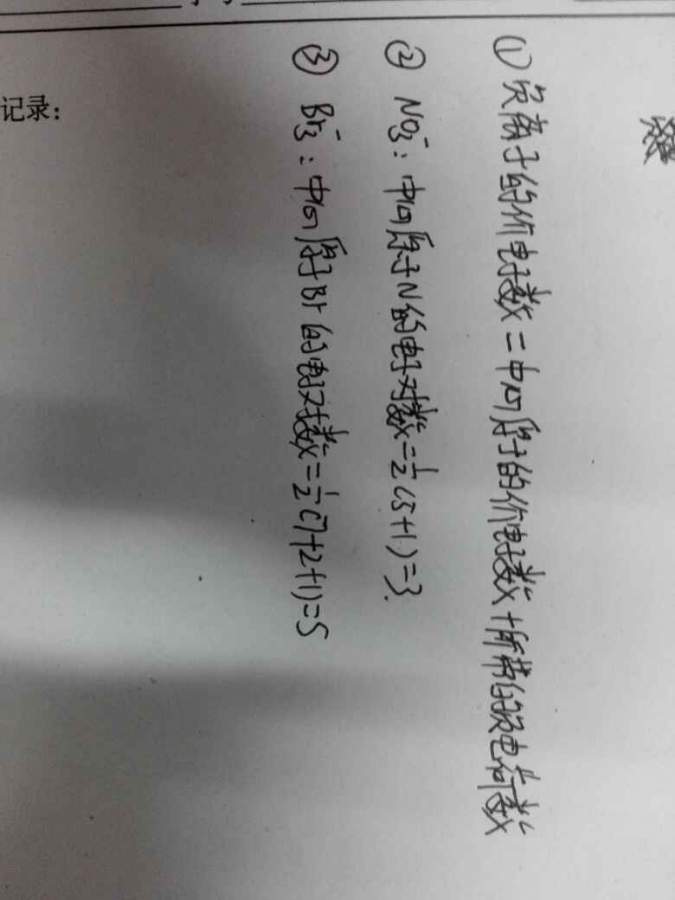 ① 负离子的价电子数=中心原子的价电子数+所带的负电荷数
② NO₃⁻:中心原子N的电子对数=½(5+1)=3.
③ Br₃⁻:中心原子Br的电子对数=½(7+2+1)=5
记录: